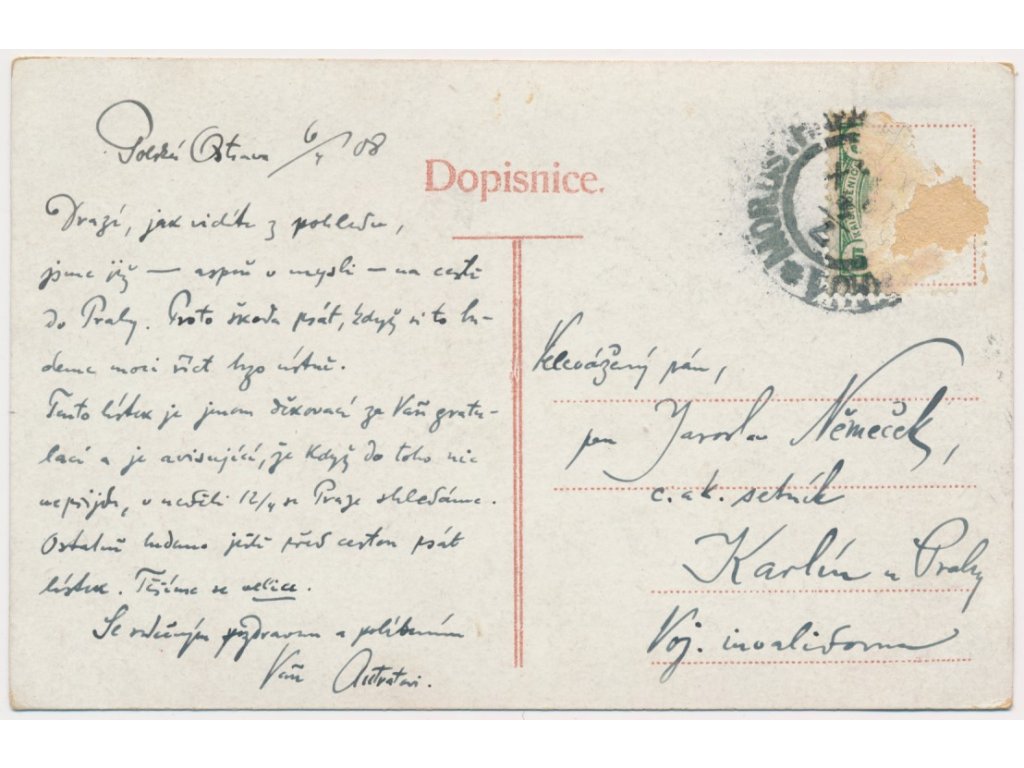 Polská Ostrava 6/4 08
Dopisnice.
Drazí, jak vidíte z pohledu,
jsme již — aspoň v mysli — na cestě
do Prahy. Proto škoda psát, když si to bu-
deme moci říct brzo ústně.
Tento lístek je jenom děkovací za Vaši gratu-
laci a je avisující, že když do toho nic
nepřijde, v neděli 12/4 se v Praze shledáme.
Ostatně budeme ještě před cestou psát
lístek. Těšíme se velice.
Se srdečným pozdravem a políbením
Vaši
Velevážený pán,
pan Jaroslav Němeček,
c. a k. setník
Karlín u Prahy
Voj. invalidovna